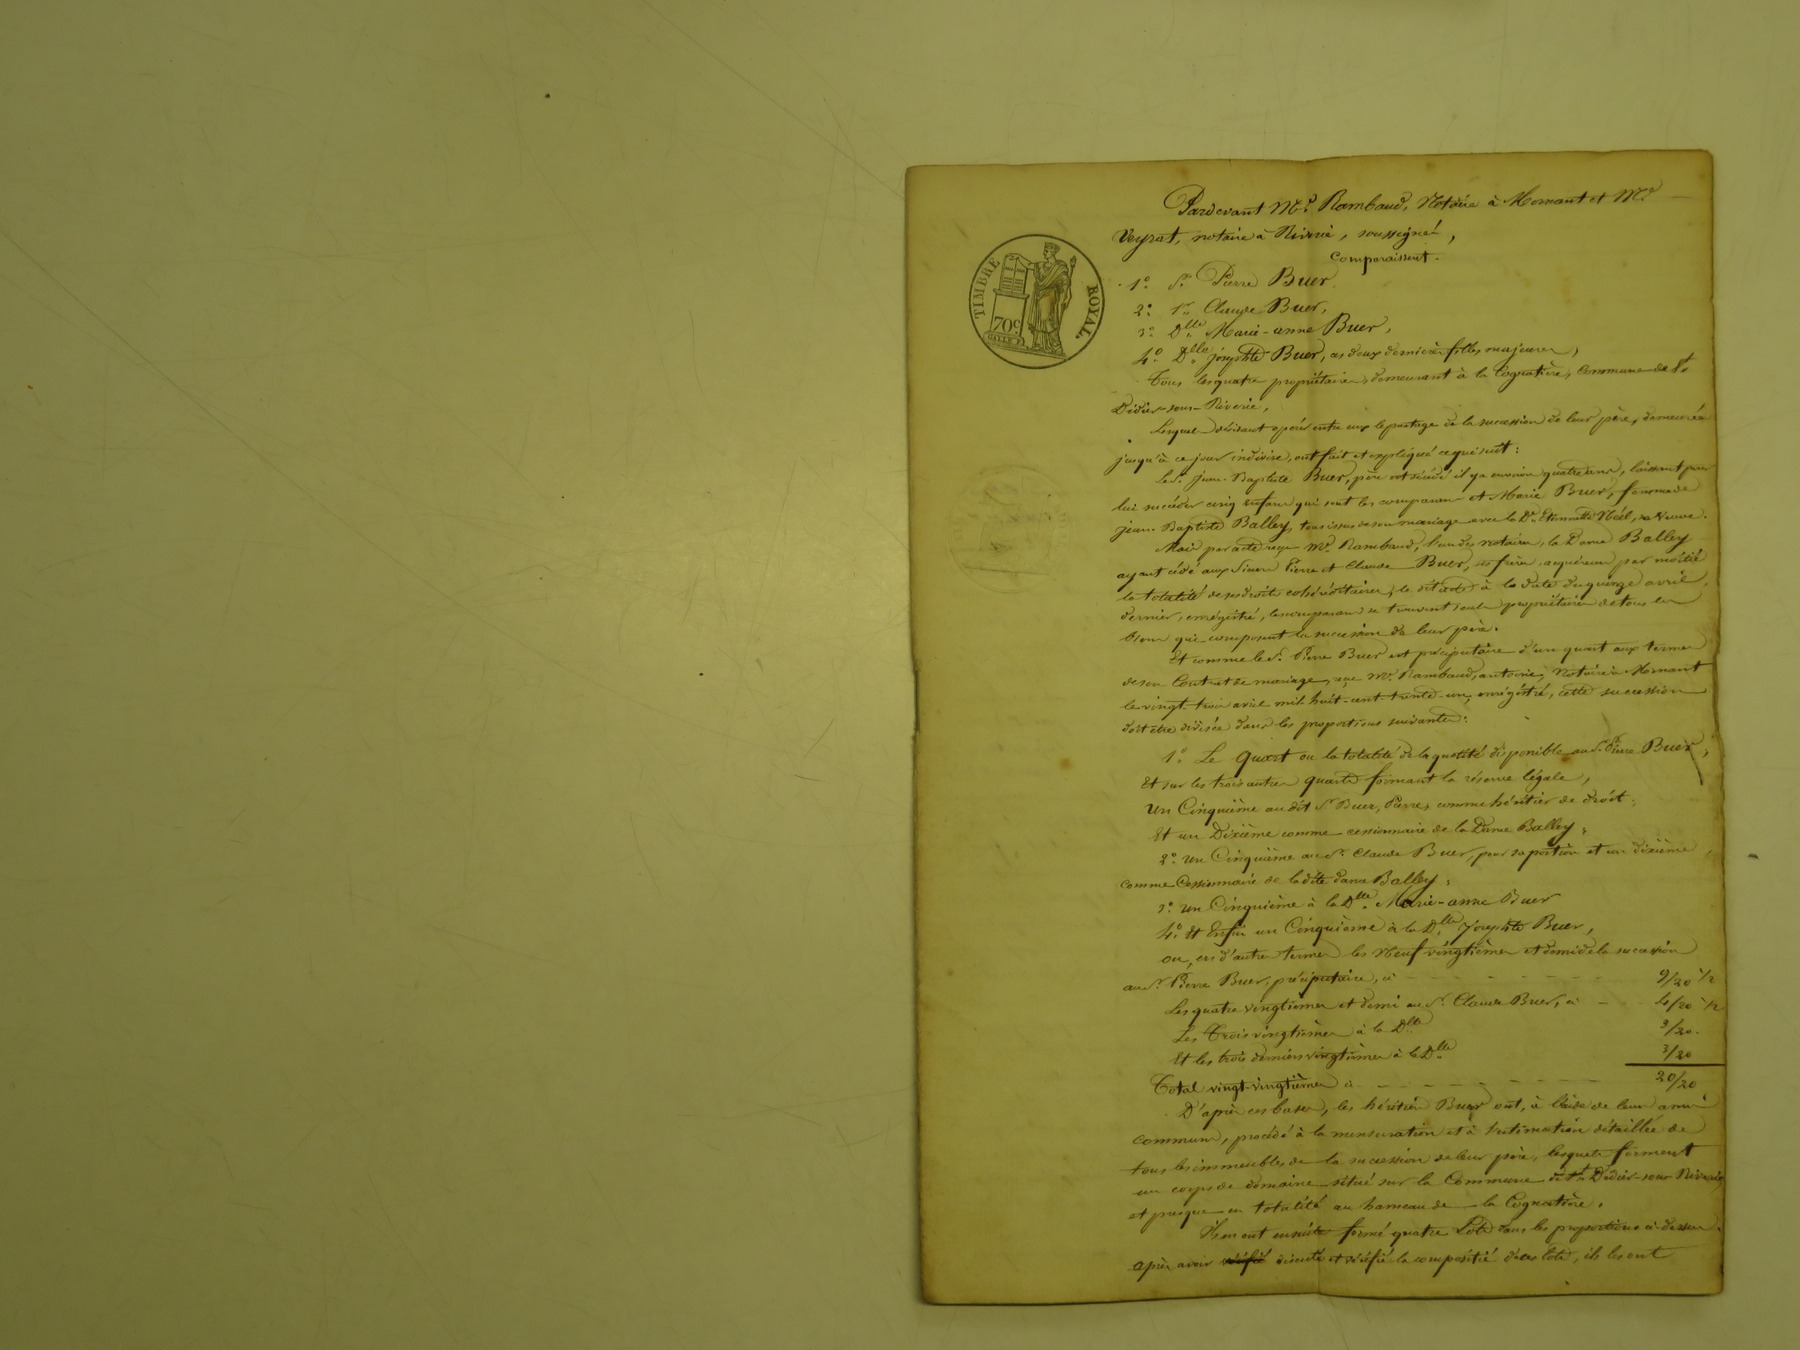 Pardevant Me. Rambaud, Notaire à Mornant et Me.
Veyrat, notaire à Riverie, soussignés,
Comparaissent.
TIMBRE ROYAL.
70c
1o. Sr. Pierre Buer,
2o. Sr. Claude Buer,
3o. Dlle. Marie-anne Buer,
4o. Dlle. Josephte Buer, ces deux dernières filles majeures,
Tous les quatre propriétaires, demeurant à la Cognatière, Commune de St
Didier-sous-Riverie,
Lesquels désirant opérer entre eux le partage de la succession de leur père, demeurée
jusqu'à ce jour indivise, ont fait et expliqué ce qui suit :
Le Sr. Jean-Baptiste Buer, père est décédé il y a environ quatre ans, laissant pour
lui succéder cinq enfans qui sont les comparans et Marie Buer, femme de
Jean-Baptiste Balley, tous issus de son mariage avec la De. Etiennette Noël, sa Veuve.
Mais par acte reçu Me. Rambaud, l'un des notaires, la Dame Balley
ayant cédé aux Sieurs Pierre et Claude Buer, ses frères, acquéreurs par moitié
la totalité de ses droits cohéréditaires, le dit acte à la date du quinze avril
dernier, enrégistré, les comparans se trouvent seuls propriétaires de tous les
biens qui composent la succession de leur père.
Et comme le Sr. Pierre Buer est préciputaire d'un quart aux termes
de son Contrat de mariage, reçu Me. Rambaud, antoine, Notaire à Mornant
le vingt-trois avril mil huit-cent trente-un, enrégistré, cette succession
doit être divisée dans les proportions suivantes :
1o. Le Quart ou la totalité de la quotité disponible au Sr. Pierre Buer,
Et sur les trois autres quarts formant la réserve légale,
Un Cinquième au dit Sr Buer, Pierre, comme héritier de droit;
Et un Dixième comme cessionnaire de la Dame Balley;
2o. Un Cinquième au Sr. Claude Buer, pour sa portion et un dixième
comme Cessionnaire de la dite dame Balley;
3o. Un Cinquième à la Dlle. Marie-anne Buer
4o. Et Enfin un Cinquième à la Dlle. Josephte Buer,
ou, en d'autres termes les Neuf vingtièmes et demi de la succession
au Sr. Pierre Buer, préciputaire, ci - - - 9/20 1/2
Les quatre vingtièmes et demi au Sr. Claude Buer, ci - - 4/20 1/2
Les Trois vingtièmes à la Dlle 3/20.
Et les trois derniers vingtièmes à la Dlle 3/20
Total vingt-vingtièmes ci - - - 20/20
D'après ces bases, les héritiers Buer ont, à l'aide de leurs amis
communs, procédé à la mensuration et à l'estimation détaillée de
tous les immeubles de la succession de leur père, lesquels forment
un corps de domaine situé sur la Commune de St. Didier-sous-Riverie,
et presque en totalité au hameau de la Cognatière.
Ils en ont ensuite formé quatre Lots dans les proportions ci-dessus.
Après avoir vérifié discuté et vérifié la composition de ces lots, ils les ont